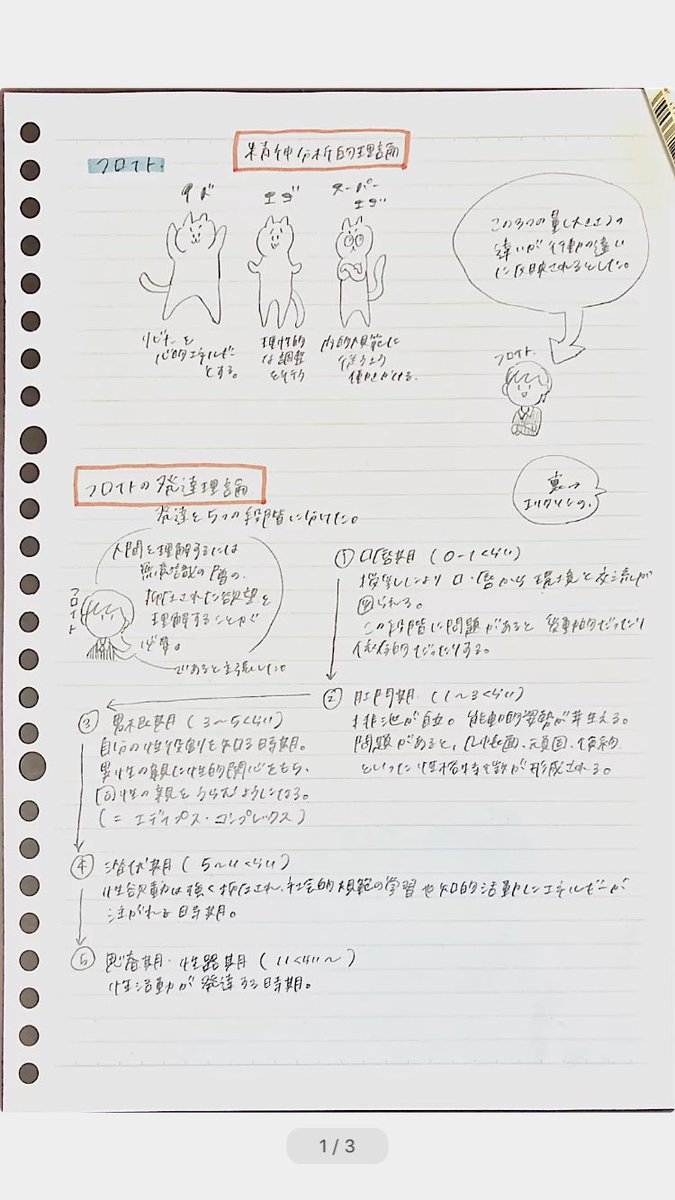 精神分析的理論
フロイト.
イド
エゴ
スーパー
エゴ
リビドーを
心的エネルギー
とする。
理性的
な調整
を行う
内的規範に
従うよう
働きかける.
この3つの量(大きさ)の
違いが行動の違い
に反映されるとした。
フロイト.
フロイトの発達理論
発達を5つの段階に分けた。
裏→
エリクソンの.
人間を理解するには
無意識の層の.
抑圧された欲望を
理解することが
必要。
であると主張した。
フロイト
① 口唇期 (0-1くらい)
授乳により口・唇から環境と交流が
図られる。
この段階に問題があると 受動的だったり
依存的だったりする。
② 肛門期. (1〜3くらい)
排泄が自立。能動的姿勢が芽生える。
問題があると, 几帳面. 頑固. 倹約.
といった性格特徴が形成される。
③ 男根期 (3〜5くらい)
自分の性役割を知る時期。
異性の親に性的関心をもち、
同性の親をうらむようになる。
(= エディプス・コンプレックス)
④ 潜伏期 (5〜11くらい)
性欲動は強く抑圧され、社会的規範の学習や知的活動にエネルギーが
注がれる時期。
⑤ 思春期・性器期 (11くらい〜)
性活動が発達する時期。
1 / 3